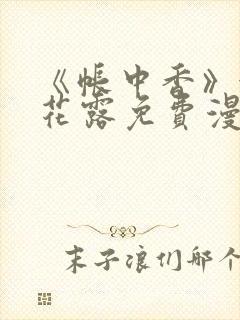 《帐中香》
花露免费漫
末子浪们那个